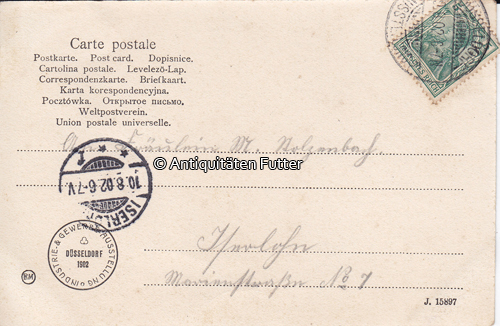 Carte postale
Postkarte. Post card. Dopisnice.
Cartolina postale. Levelező-Lap.
Correspondenzkarte. Briefkaart.
Karta korespondencyjna.
Pocztówka. Открытое письмо.
Weltpostverein.
Union postale universelle.
An Fräulein M. Stolzenbach
© Antiquitäten Futter
10.8.02 6-7V.
ISERLO
INDUSTRIE-& GEWERBE AUSSTELLUNG
DÜSSELDORF
1902
Iserlohn
Marienstraße No 7
RM
J. 15897